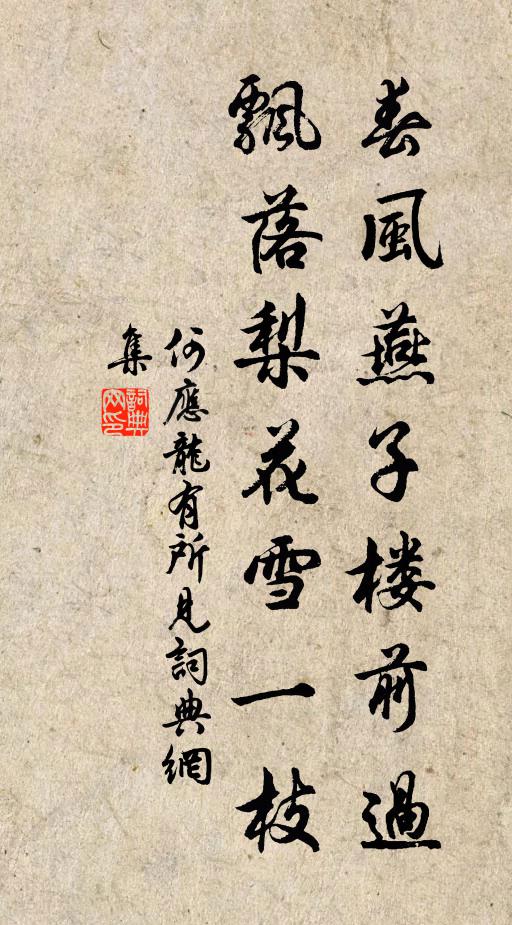 春風燕子楼前過
飄落梨花雪一枝
何應龍有所見詞典網
集
詞典
网印